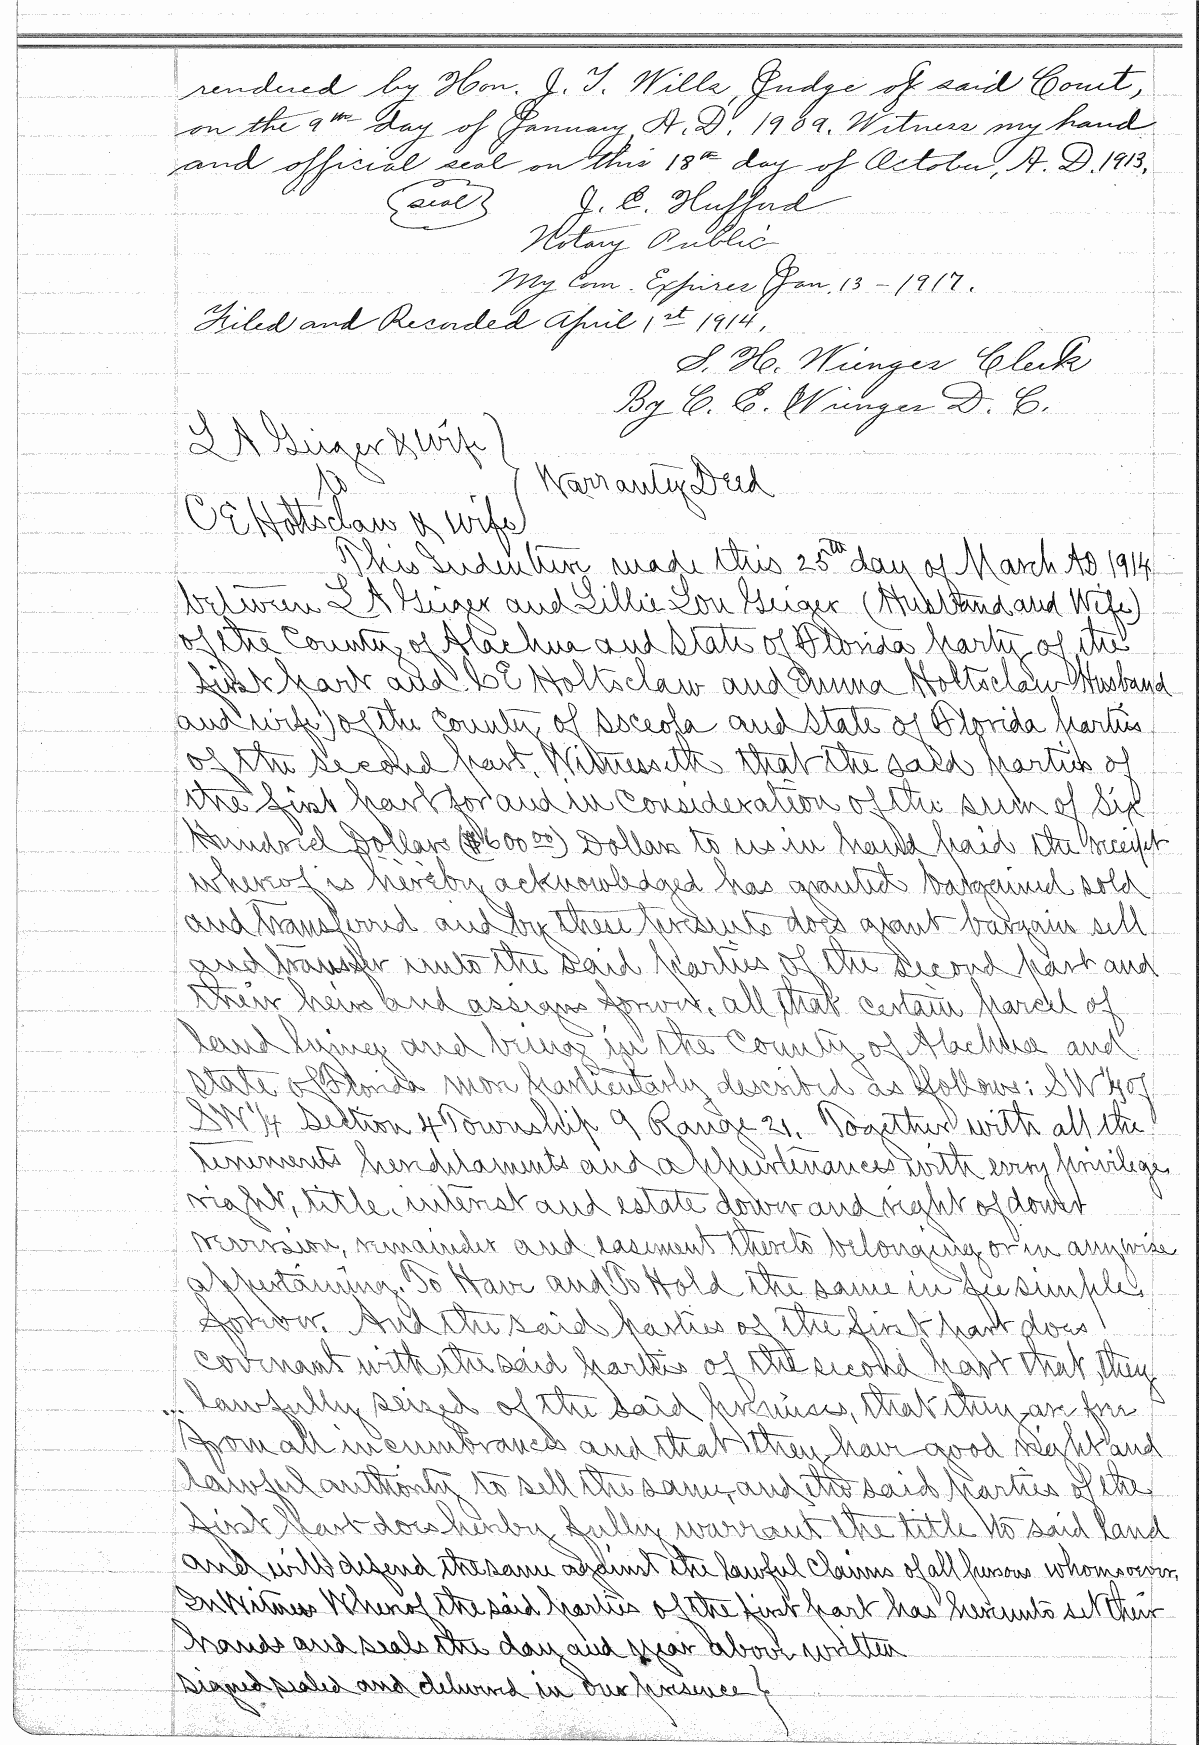 rendered by Hon. J. T. Wills, Judge of said Court,
on the 9th day of January, A. D. 1909. Witness my hand
and official seal on this 18th day of October, A. D. 1913.
(seal) J. C. Hufford
Notary Public
My Com. Expires Jan. 13 - 1917.
Filed and Recorded April 1st 1914.
S. H. Wienges Clerk
By C. E. Wienges D. C.
L A Geiger & Wife
to
Warranty Deed
C E Holtsclaw & Wife
This Indenture made this 25th day of March AD 1914
between L A Geiger and Lillie Lou Geiger (Husband and Wife)
of the County of Alachua and State of Florida party of the
first part and C E Holtsclaw and Emma Holtsclaw Husband
and wife) of the County of Osceola and State of Florida parties
of the second part, Witnesseth that the said parties of
the first part for and in consideration of the sum of Six
Hundred Dollars ($600 00) Dollars to us in hand paid the receipt
whereof is hereby acknowledged has granted bargained sold
and transferred and by these presents does grant bargain sell
and transfer unto the said parties of the second part and
their heirs and assigns forever, all that certain parcel of
land lying and being in the County of Alachua and
State of Florida more particularly described as follows: SW 1/4 of
SW 1/4 Section 4 Township 9 Range 21. Together with all the
tenements hereditaments and appurtenances with every privilege
right, title, interest and estate dower and right of dower
reversion, remainder and easement thereto belonging or in anywise
appertaining. To Have and To Hold the same in fee simple
forever. And the said parties of the first part does
covenant with the said parties of the second part that they
lawfully seized of the said premises, that they are free
from all incumbrances and that they have good right and
lawful authority to sell the same, and the said parties of the
first part does hereby fully warrant the title to said land
and will defend the same against the lawful claims of all persons whomsoever,
In Witness Whereof the said parties of the first part has hereunto set their
hands and seals the day and year above written
Signed sealed and delivered in our presence